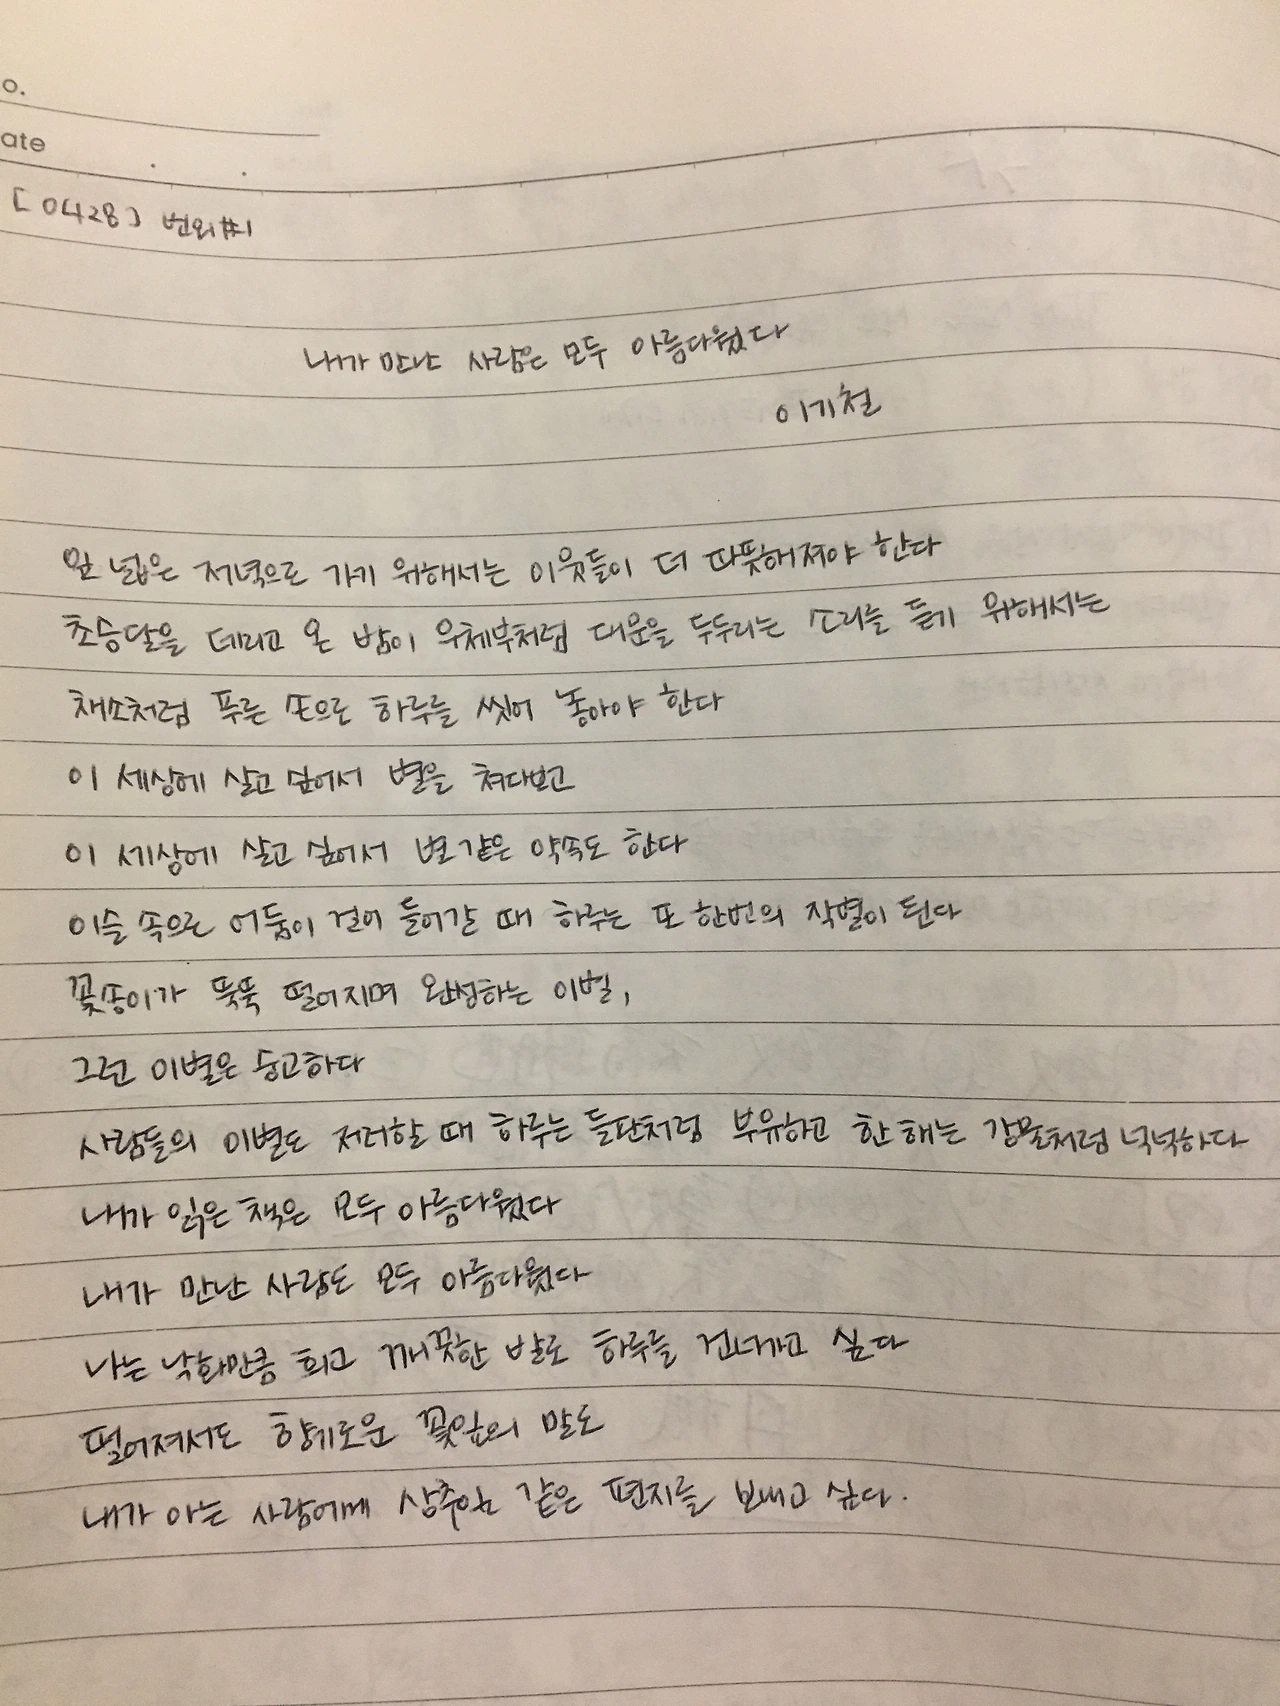 o.
ate
[0428] 번외#1
내가 만난 사람은 모두 아름다웠다
이기철
잎 넓은 저녁으로 가기 위해서는 이웃들이 더 따뜻해져야 한다
초승달을 데리고 온 밤이 우체부처럼 대문을 두드리는 소리를 듣기 위해서는
채소처럼 푸른 손으로 하루를 씻어 놓아야 한다
이 세상에 살고 싶어서 별을 쳐다보고
이 세상에 살고 싶어서 별 같은 약속도 한다
이슬 속으로 어둠이 걸어 들어갈 때 하루는 또 한번의 작별이 된다
꽃송이가 뚝뚝 떨어지며 완성하는 이별,
그런 이별은 숭고하다
사람들의 이별도 저러할 때 하루는 들판처럼 부유하고 한 해는 강물처럼 넉넉하다
내가 읽은 책은 모두 아름다웠다
내가 만난 사람도 모두 아름다웠다
나는 낙화만큼 희고 깨끗한 발로 하루를 건너가고 싶다
떨어져서도 향기로운 꽃잎의 말로
내가 아는 사람에게 상추잎 같은 편지를 보내고 싶다.